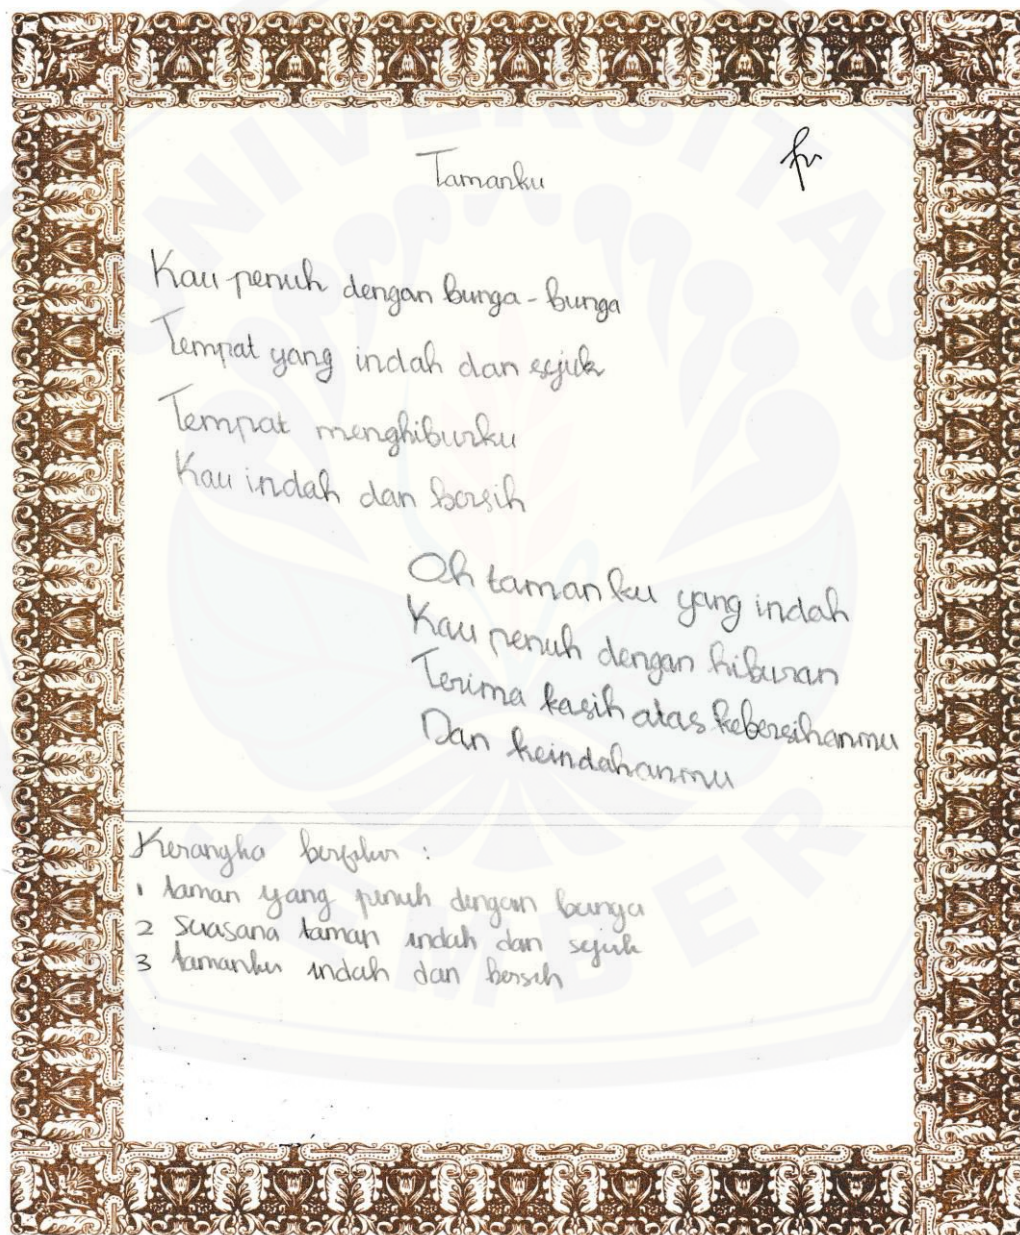 Tamanku
Kau penuh dengan bunga-bunga
Tempat yang indah dan sejuk
Tempat menghiburku
Kau indah dan bersih
Oh tamanku yang indah
Kau penuh dengan hiburan
Terima kasih atas kebersihanmu
Dan keindahanmu
Kerangka berfikir :
1 taman yang penuh dengan bunga
2 suasana taman indah dan sejuk
3 tamanku indah dan bersih
UNIVERSITAS
JEMBER